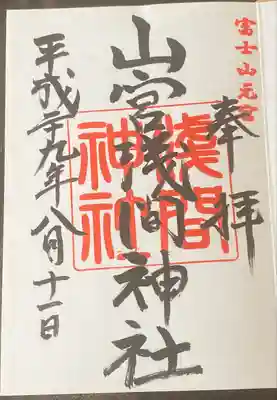 富士山元宮
奉拝
山宮浅間神社
浅間
神社
平成二十九年八月十一日